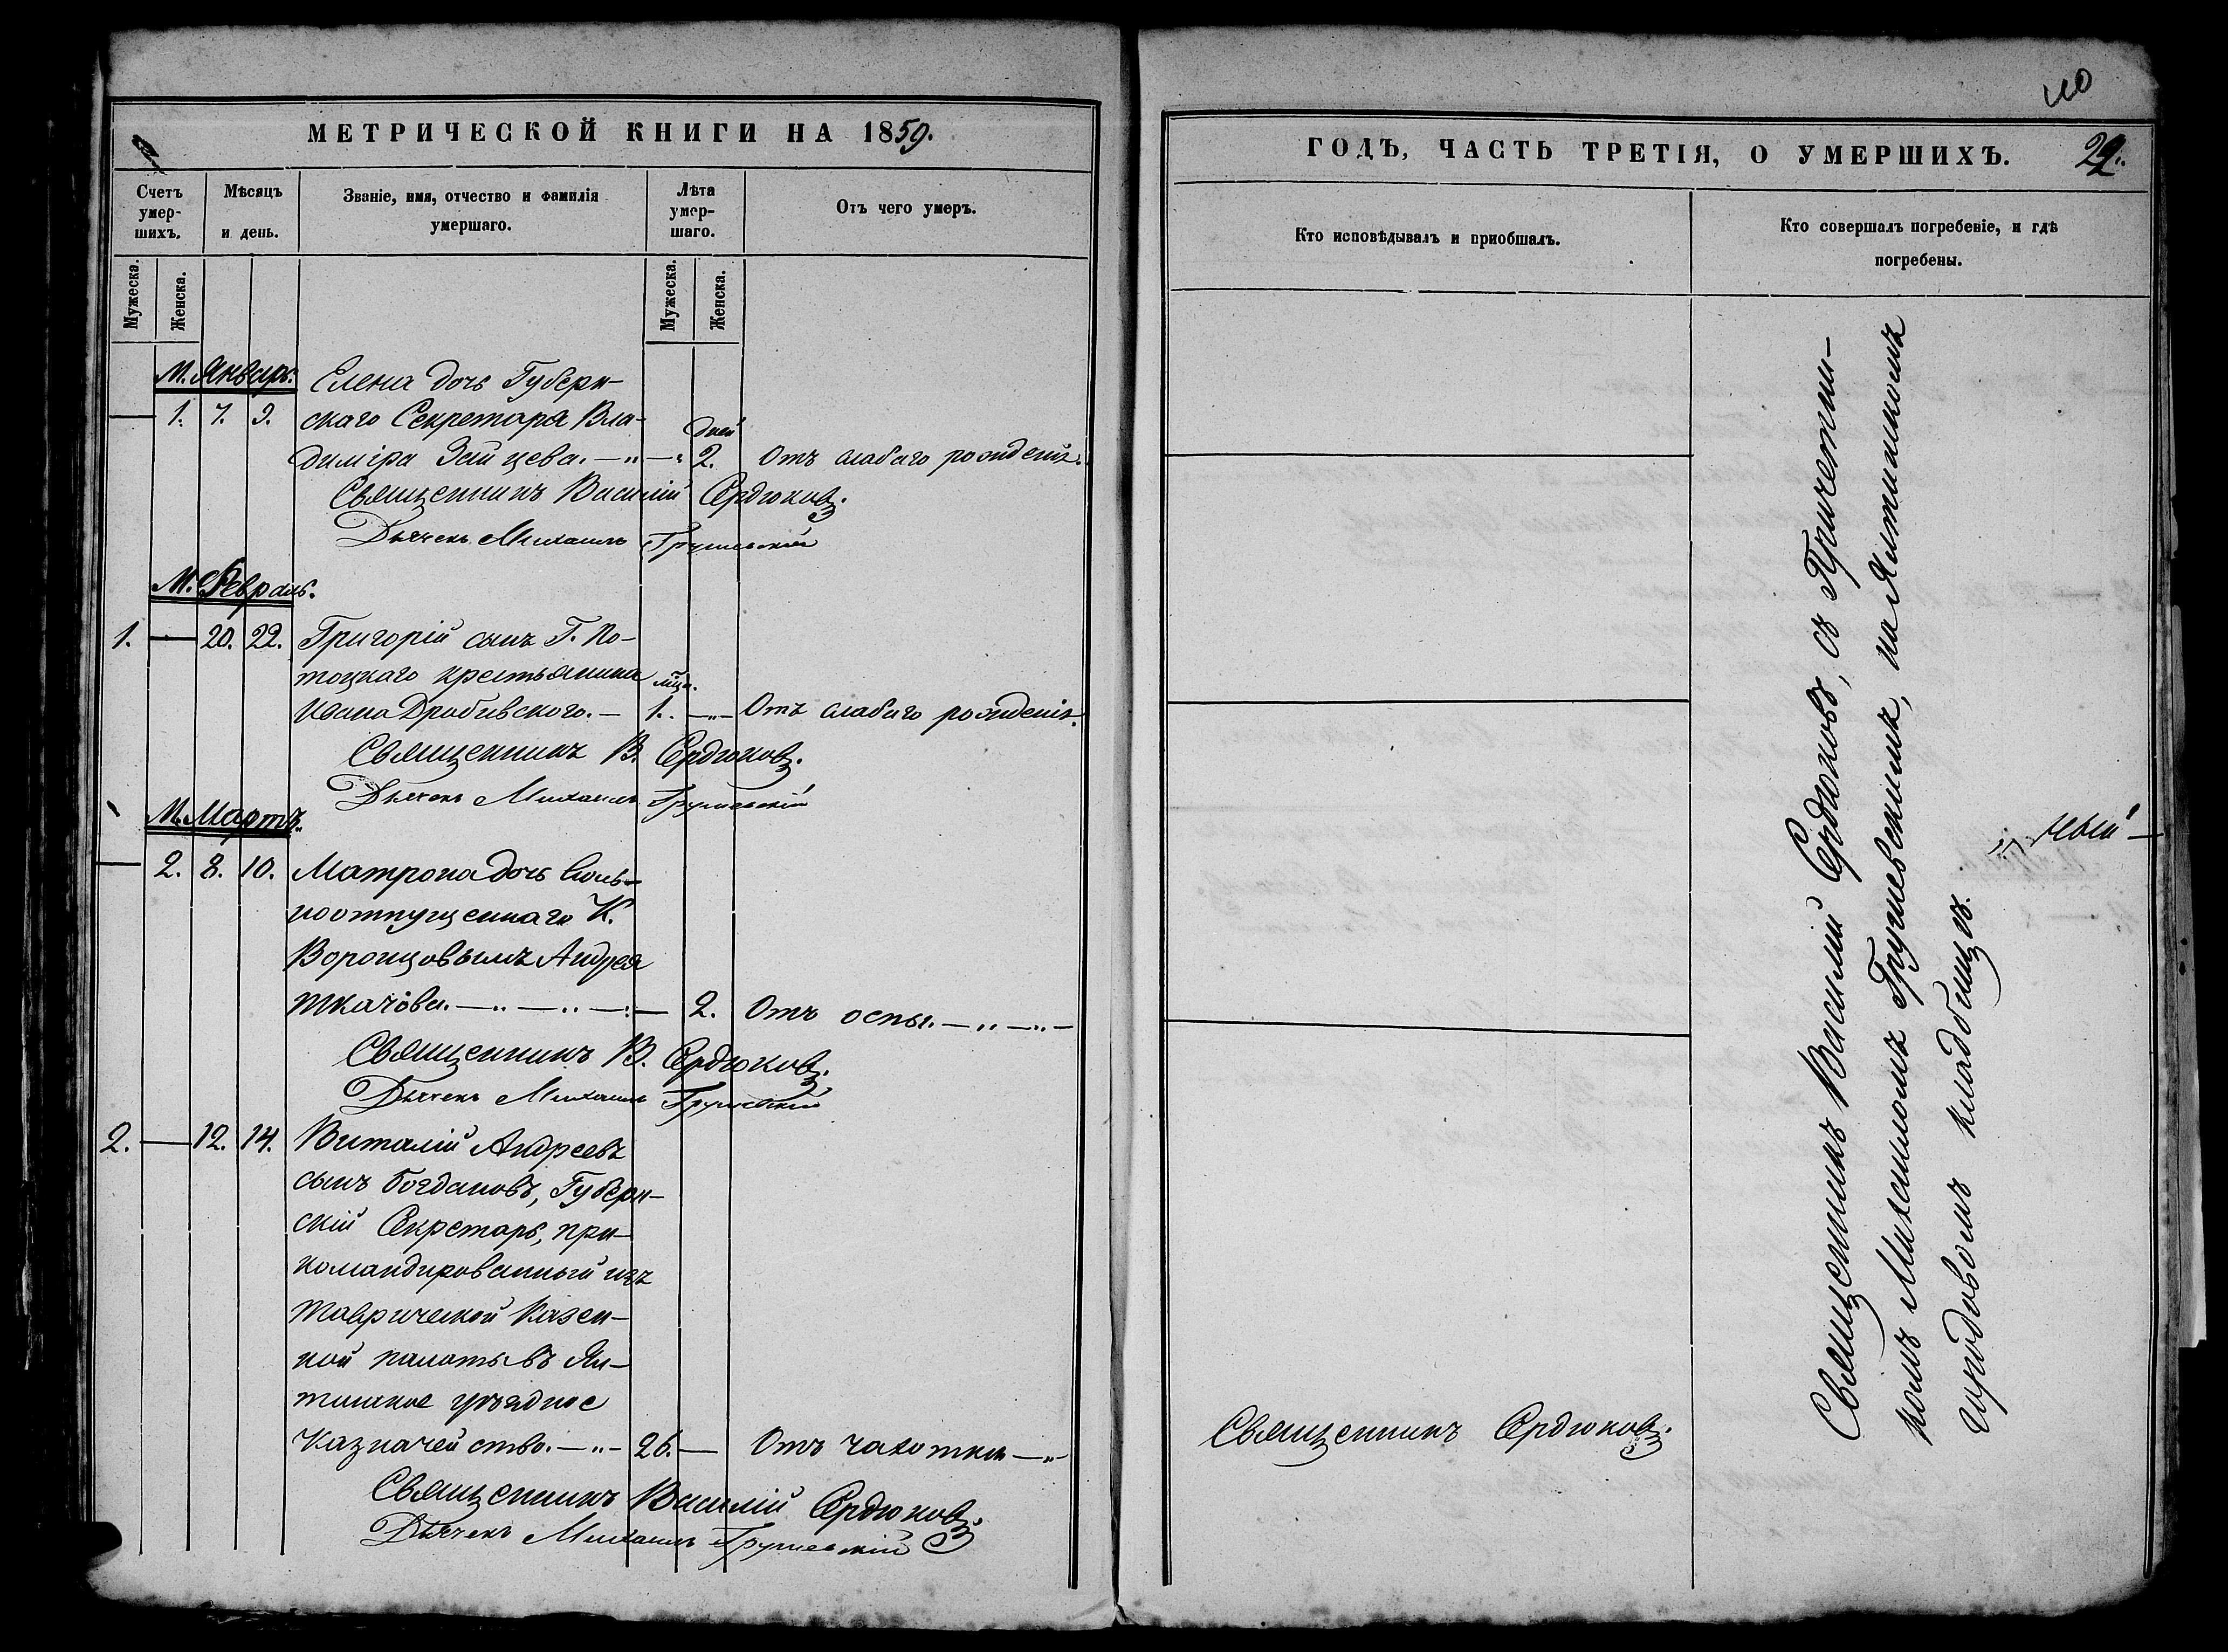 МЕТРИЧЕСКОЙ КНИГИ НА 1859.
Счетъ умер-шихъ.
Мѣсяцъ и день.
Званіе, имя, отчество и фамилія умершаго.
Лѣта умер-шаго.
Отъ чего умеръ.
Мужеска.
Женска.
Мужеска.
Женска.
М. Январь.
Елена дочь Губерн-
— 1. 7. 9. скаго Секретаря Вла-
дней
диміра Зайцева. — „ — „ 2. Отъ слабаго рожденія.
Священникъ Василій Сердюковъ.
Дьячекъ Михаилъ Грушевскій
М. Февраль.
1. — 20. 22. Григорій сынъ Г. По-
тоцкаго крестьянина мца.
Ивана Дробивского. — 1. — „ — Отъ слабаго рожденія.
Священникъ В. Сердюковъ.
Дьячекъ Михаилъ Грушевскій
М. Мартъ.
— 2. 8. 10. Матрона дочь воль-
ноотпущеннаго К.
Воронцовымъ Андрея
Ткачова. — „ — „ — „ — 2. Отъ оспы. — „ — „ —
Священникъ В. Сердюковъ.
Дьячекъ Михаилъ Грушевскій
2. — 12. 14. Виталій Андреевъ
сынъ Богдановъ, Губерн-
скій Секретарь, при-
командированный изъ
Таврической Казен-
ной палаты въ Ял-
тинское уѣздное
Казначейство. — „ — 26. — Отъ чахотки — „ —
Священникъ Василій Сердюковъ.
Дьячекъ Михаилъ Грушевскій
110
ГОДЪ, ЧАСТЬ ТРЕТІЯ, О УМЕРШИХЪ. 22.
Кто исповѣдывалъ и пріобщалъ.
Кто совершалъ погребеніе, и гдѣ погребены.
Священникъ Сердюковъ.
Священникъ Василій Сердюковъ, съ Причетни-
комъ Михаиломъ Грушевскимъ, на Ялтинскомъ
городовомъ кладбищѣ.
ный —